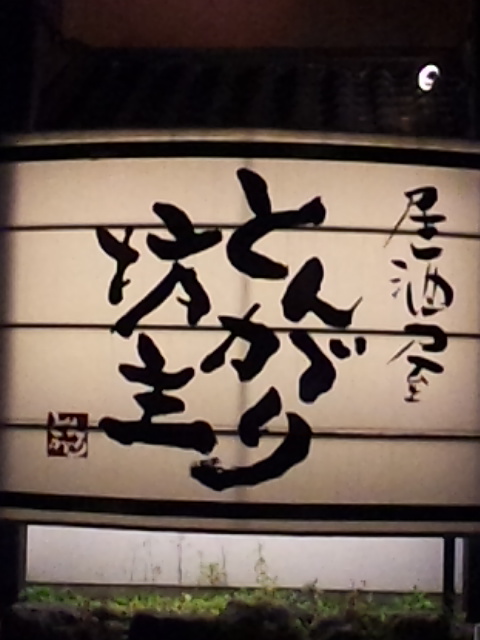 居酒屋
とんがり
坊主